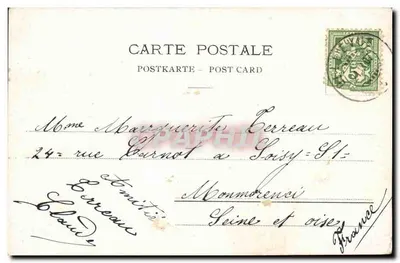 CARTE POSTALE
POSTKARTE - POST CARD
Mme Marguerite Terreau
24 rue Carnot a Soisy-St-
Monmorenci
Seine et oise
France
Amitié
Terreau
Claude